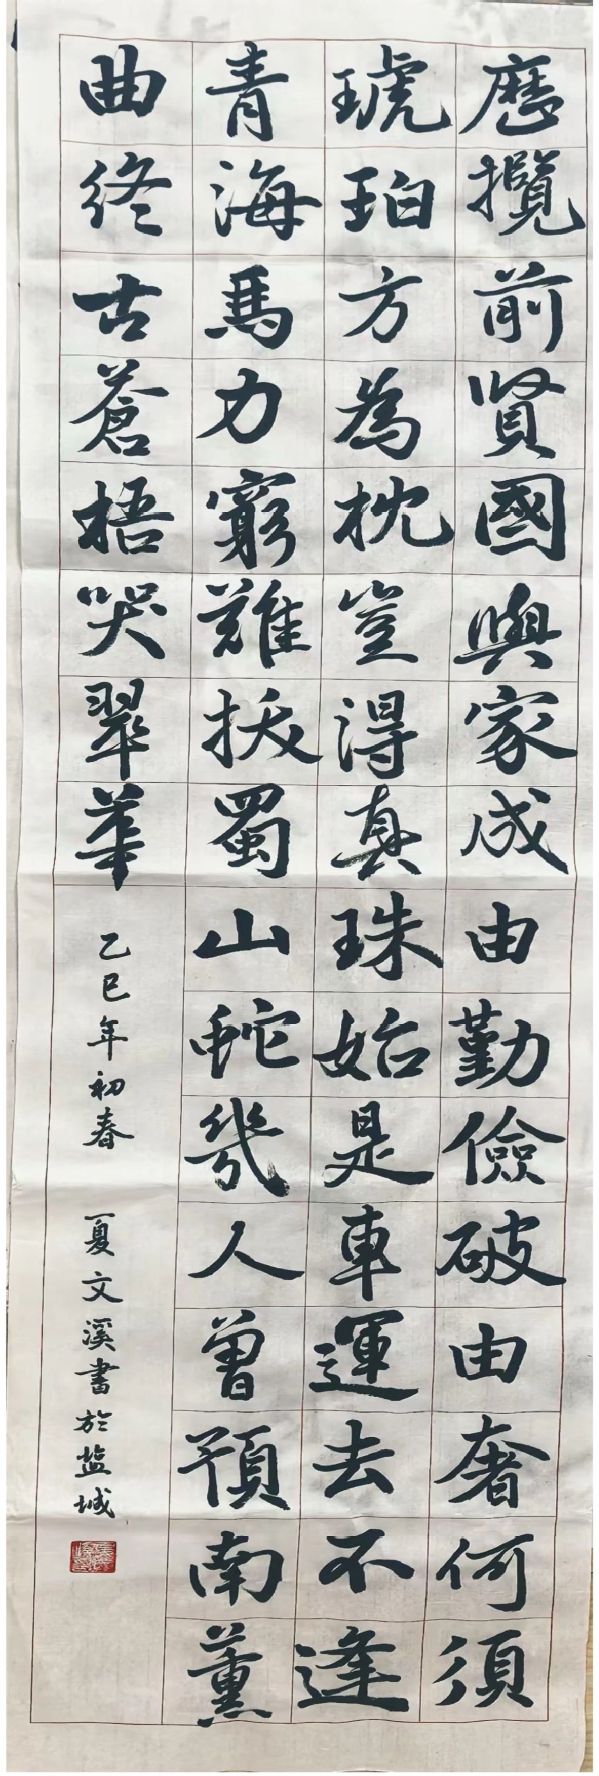 歷攬前賢國與家成由勤儉破由奢何須
琥珀方為枕豈得真珠始是車運去不逢
青海馬力窮難拔蜀山蛇幾人曾預南薰
曲終古蒼梧哭翠華
乙巳年初春 夏文溪書於盐城